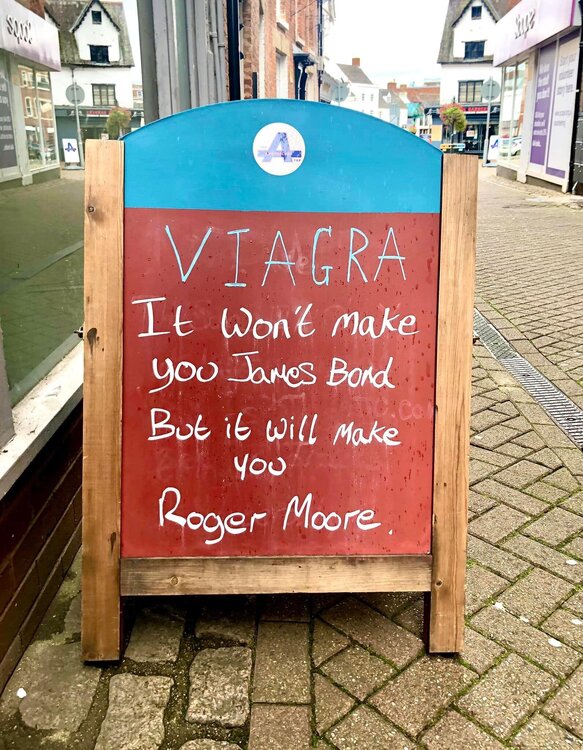 VIAGRA
It Won't Make
you James Bond
But it will Make
you
Roger Moore.